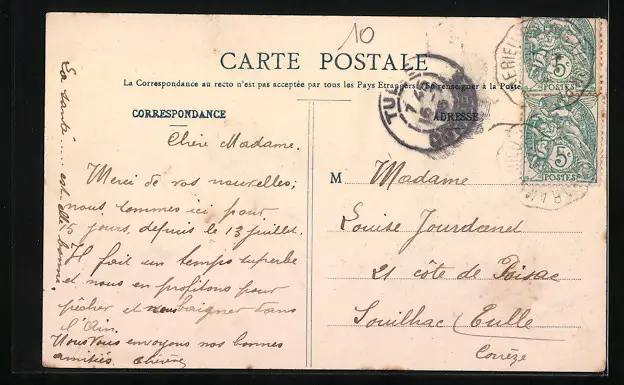 10
CARTE POSTALE
La Correspondance au recto n'est pas acceptée par tous les Pays Etrangers. (Se renseigner à la Poste
CORRESPONDANCE
ADRESSE
Chère Madame.
Merci de vos nouvelles;
nous sommes ici pour
jours, depuis le 13 juillet.
Il fait un temps superbe
et nous en profitons pour
pêcher et nous baigner dans
l'Ain.
Nous vous envoyons nos bonnes
amitiés.
La santé ... est-elle bonne
M Madame
Louise Jourdand
21 côte de Poisac
Souilhac (Tulle
Corrèze
TULLE
5c
POSTES
5c
POSTES